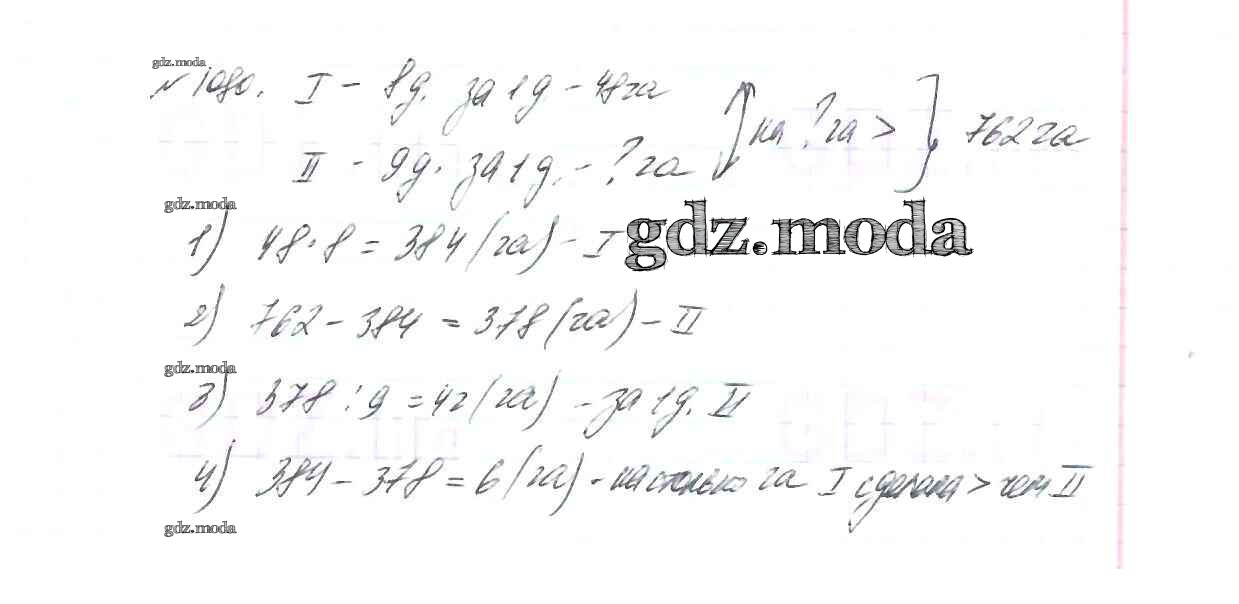 gdz.moda
№ 1080. I - 8д. за 1д - 48га
на ? га > 762га
II - 9д. за 1д. - ? га
gdz.moda
1) 48·8 = 384 (га) - I
gdz.moda
2) 762 - 384 = 378 (га) - II
gdz.moda
3) 378 : 9 = 42 (га) - за 1д. II
4) 384 - 378 = 6 (га) - настолько га I сделала > чем II
gdz.moda